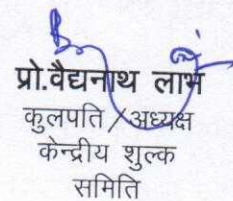 प्रो.वैद्यनाथ लाभ
कुलपति / अध्यक्ष
केन्द्रीय शुल्क
समिति